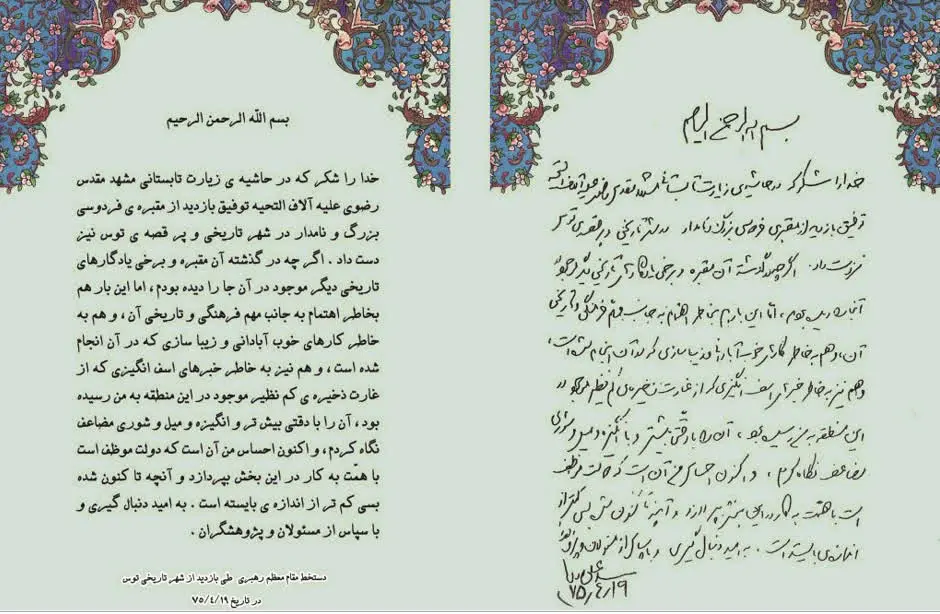 بسم اللّه الرحمن الرحیم
خدا را شکر که در حاشیه ی زیارت تابستانی مشهد مقدس
رضوی علیه آلاف التحیه توفیق بازدید از مقبره ی فردوسی
بزرگ و نامدار در شهر تاریخی و پر قصه ی توس نیز
دست داد . اگر چه در گذشته آن مقبره و برخی یادگارهای
تاریخی دیگر موجود در آن جا را دیده بودم ، اما این بار هم
بخاطر اهتمام به جانب مهم فرهنگی و تاریخی آن ، و هم به
خاطر کارهای خوب آبادانی و زیبا سازی که در آن انجام
شده است ، و هم نیز به خاطر خبرهای اسف انگیزی که از
غارت ذخیره ی کم نظیر موجود در این منطقه به من رسیده
بود ، آن را با دقتی بیش تر و انگیزه و میل و شوری مضاعف
نگاه کردم ، و اکنون احساس من آن است که دولت موظف است
با همّت به کار در این بخش بپردازد و آنچه تا کنون شده
بسی کم تر از اندازه ی بایسته است . به امید دنبال گیری و
با سپاس از مسئولان و پژوهشگران .
دستخط مقام معظم رهبری طی بازدید از شهر تاریخی توس
در تاریخ ۷۵/۴/۱۹
بسم الله الرحمن الرحیم
خدا را شکر که در حاشیه‌ی زیارت تابستانی مشهد مقدس
توفیق بازدید از مقبره‌ی فردوسی بزرگ و نامدار در شهر تاریخی و پر قصه‌ی توس
نیز دست داد . اگر چه در گذشته آن مقبره و برخی یادگارهای تاریخی دیگر موجود در
آنجا را دیده بودم ، اما این بار هم بخاطر اهتمام به جانب مهم فرهنگی و تاریخی
آن ، و هم به خاطر کارهای خوب آبادانی و زیبا سازی که در آن انجام شده است ،
و هم نیز به خاطر خبرهای اسف انگیزی که از غارت ذخیره‌ی کم نظیر موجود در
این منطقه به من رسیده بود ، آن را با دقتی بیشتر و با انگیزه و میل و شوری
مضاعف نگاه کردم ، و اکنون احساس من آن است که دولت موظف
است با همت به کار در این بخش بپردازد و آنچه تا کنون شده بسی کمتر از
اندازه‌ی بایسته است . به امید دنبال گیری و با سپاس از مسئولان و پژوهشگران
۷۵/۴/۱۹